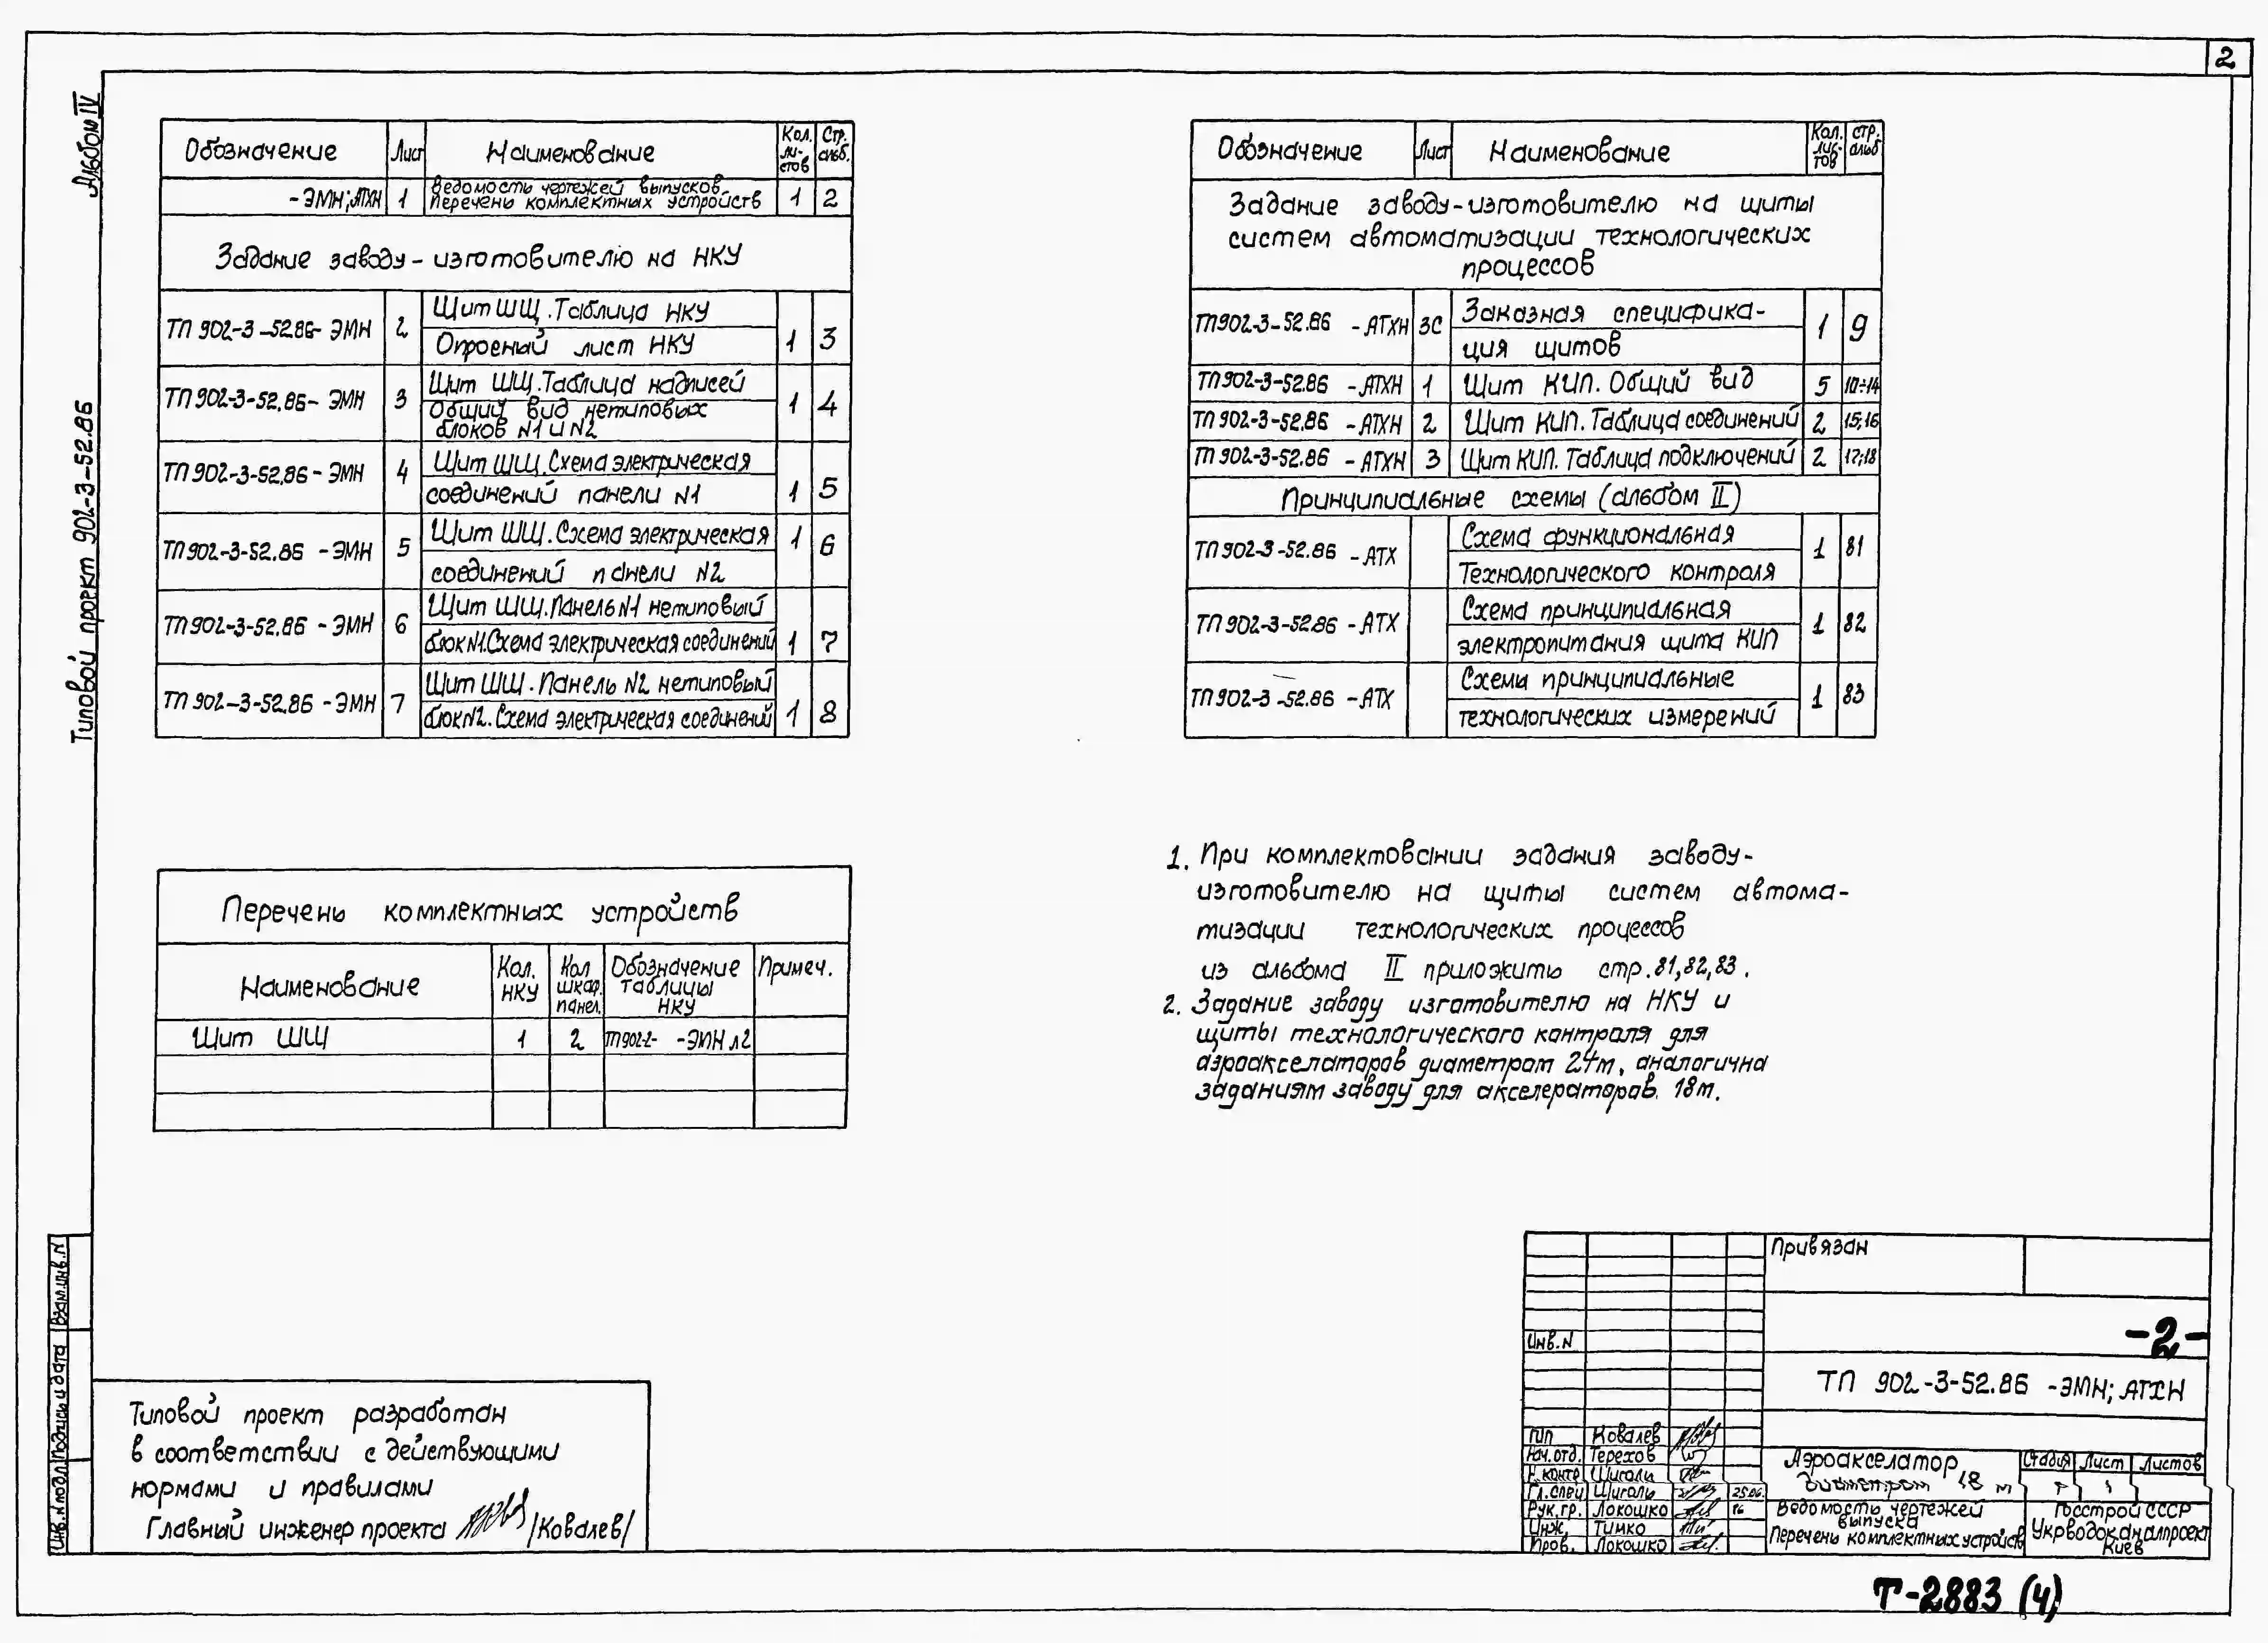 2
Альбом IV
Типовой проект 902-3-52.86
Обозначение Лист Наименование Кол. ли-стов Стр. альб.
-ЭМН; АТХН 1 Ведомость чертежей выпусков. Перечень комплектных устройств 1 2
Задание заводу-изготовителю на НКУ
ТП 902-3-52.86- ЭМН 2 Щит ШЩ. Таблица НКУ
Опросный лист НКУ 1 3
ТП 902-3-52.86- ЭМН 3 Щит ШЩ. Таблица надписей
Общий вид нетиповых блоков N1 и N2 1 4
ТП 902-3-52.86 - ЭМН 4 Щит ШЩ. Схема электрическая
соединений панели N1 1 5
ТП 902-3-52.86 - ЭМН 5 Щит ШЩ. Схема электрическая 1 6
соединений панели N2
ТП 902-3-52.86 - ЭМН 6 Щит ШЩ. Панель N1 нетиповый
блок N1. Схема электрическая соединений 1 7
ТП 902-3-52.86 - ЭМН 7 Щит ШЩ. Панель N2 нетиповый
блок N2. Схема электрическая соединений 1 8
Обозначение Лист Наименование Кол. лис-тов стр. альб
Задание заводу-изготовителю на щиты
систем автоматизации технологических
процессов
ТП 902-3-52.86 - АТХН ЗС Заказная специфика-
ция щитов 1 9
ТП 902-3-52.86 - АТХН 1 Щит КИП. Общий вид 5 10÷14
ТП 902-3-52.86 - АТХН 2 Щит КИП. Таблица соединений 2 15;16
ТП 902-3-52.86 - АТХН 3 Щит КИП. Таблица подключений 2 17;18
Принципиальные схемы (альбом II)
ТП 902-3-52.86 - АТХ Схема функциональная
Технологического контроля 1 81
ТП 902-3-52.86 - АТХ Схема принципиальная
электропитания щита КИП 1 82
ТП 902-3-52.86 - АТХ Схемы принципиальные
технологических измерений 1 83
Перечень комплектных устройств
Наименование Кол. НКУ Кол шкаф. панел. Обозначение таблицы НКУ Примеч.
Щит ШЩ 1 2 ТП902-2- -ЭМН л2
1. При комплектовании задания заводу-
изготовителю на щиты систем автома-
тизации технологических процессов
из альбома II приложить стр. 81,82,83.
2. Задание заводу изготовителю на НКУ и
щиты технологического контроля для
аэроакселаторов диаметром 24м, аналогична
заданиям заводу для акселераторов. 18м.
Типовой проект разработан
в соответствии с действующими
нормами и правилами
Главный инженер проекта /Ковалев/
Инв. N подл. Подпись и дата Взам. инв. N
Привязан
Инв. N
-2-
ТП 902-3-52.86 -ЭМН; АТХН
ГИП Ковалев
Нач. отд. Терехов
Н. контр Шигаль
Гл. спец Шигаль 25.06.
Рук. гр. Локошко 86
Инж. Тимко
Пров. Локошко
Аэроакселатор
диаметром 18 м
Стадия Лист Листов
Р 1
Ведомость чертежей
выпуска
Перечень комплектных устройств
Госстрой СССР
Укрводоканалпроект
Киев
Т-2883 (4)